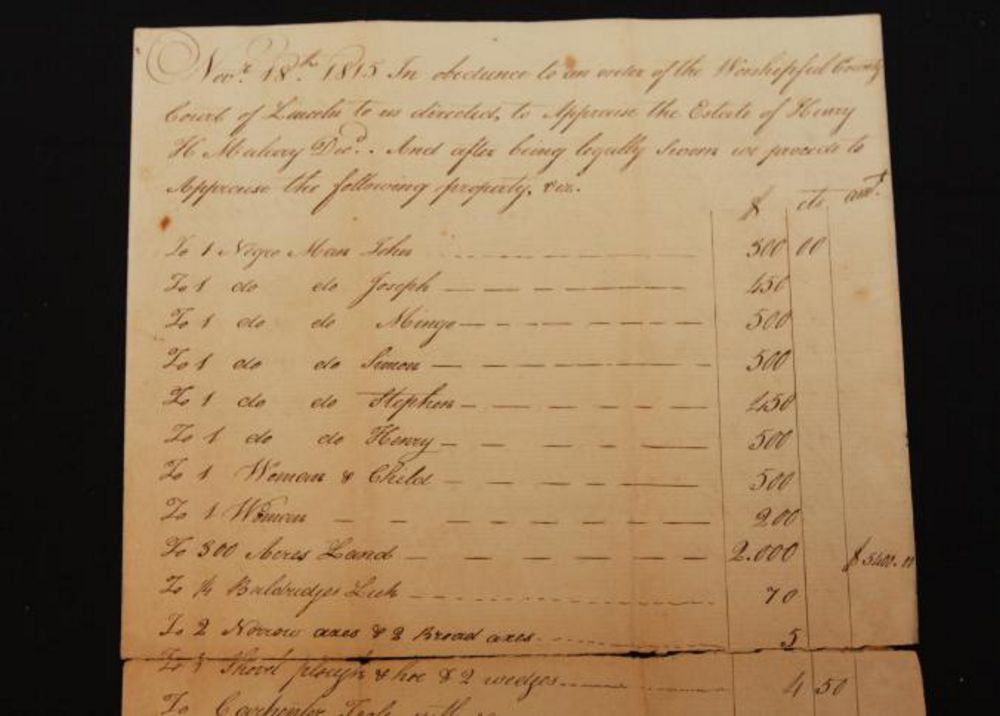 Novr. 18th. 1815 In obedience to an order of the Worshipfull County
Court of Lincoln to us directed, to Appraise the Estate of Henry
H Decd. And after being legally Sworn we proceede to
Appraise the following property. viz.
$ cts amt.
To 1 Negro Man John 500 00
To 1 do do Joseph 450
To 1 do do Mingo 500
To 1 do do Simon 500
To 1 do do Stephen 450
To 1 do do Henry 500
To 1 Woman & Child 500
To 1 Woman 200
To 300 Acres Land 2.000
To 1/4 Baldridges Lick 70
To 2 Narrow axes & 2 Broad axes 5
To 1 Shovel plough & hoe & 2 wedges 4 50
To Carpenter Tools